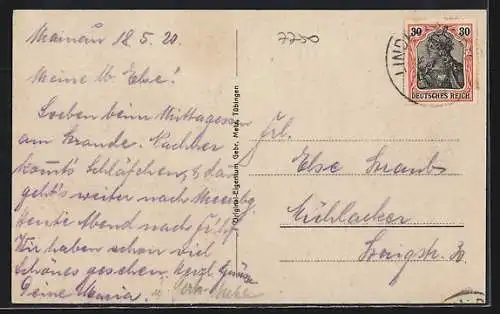 Mainau 18.5.20.
Meine lb. Else!
Soeben beim Mittagessen
am Strande. Nachher
kommt's Schläfchen, & dann
geht's weiter nach Meersbg.
Heute Abend nach
Wir haben schon viel
Schönes gesehen. Herzl. Grüsse
Deine Maria.
7750
Original-Eigentum Gebr. Metz, Tübingen
30 30
DEUTSCHES REICH
LIND
Frl.
Else Straub
Mühlacker